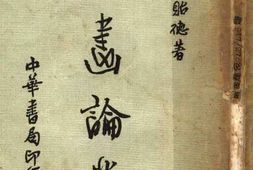 貽德著
畫論
中華書局印